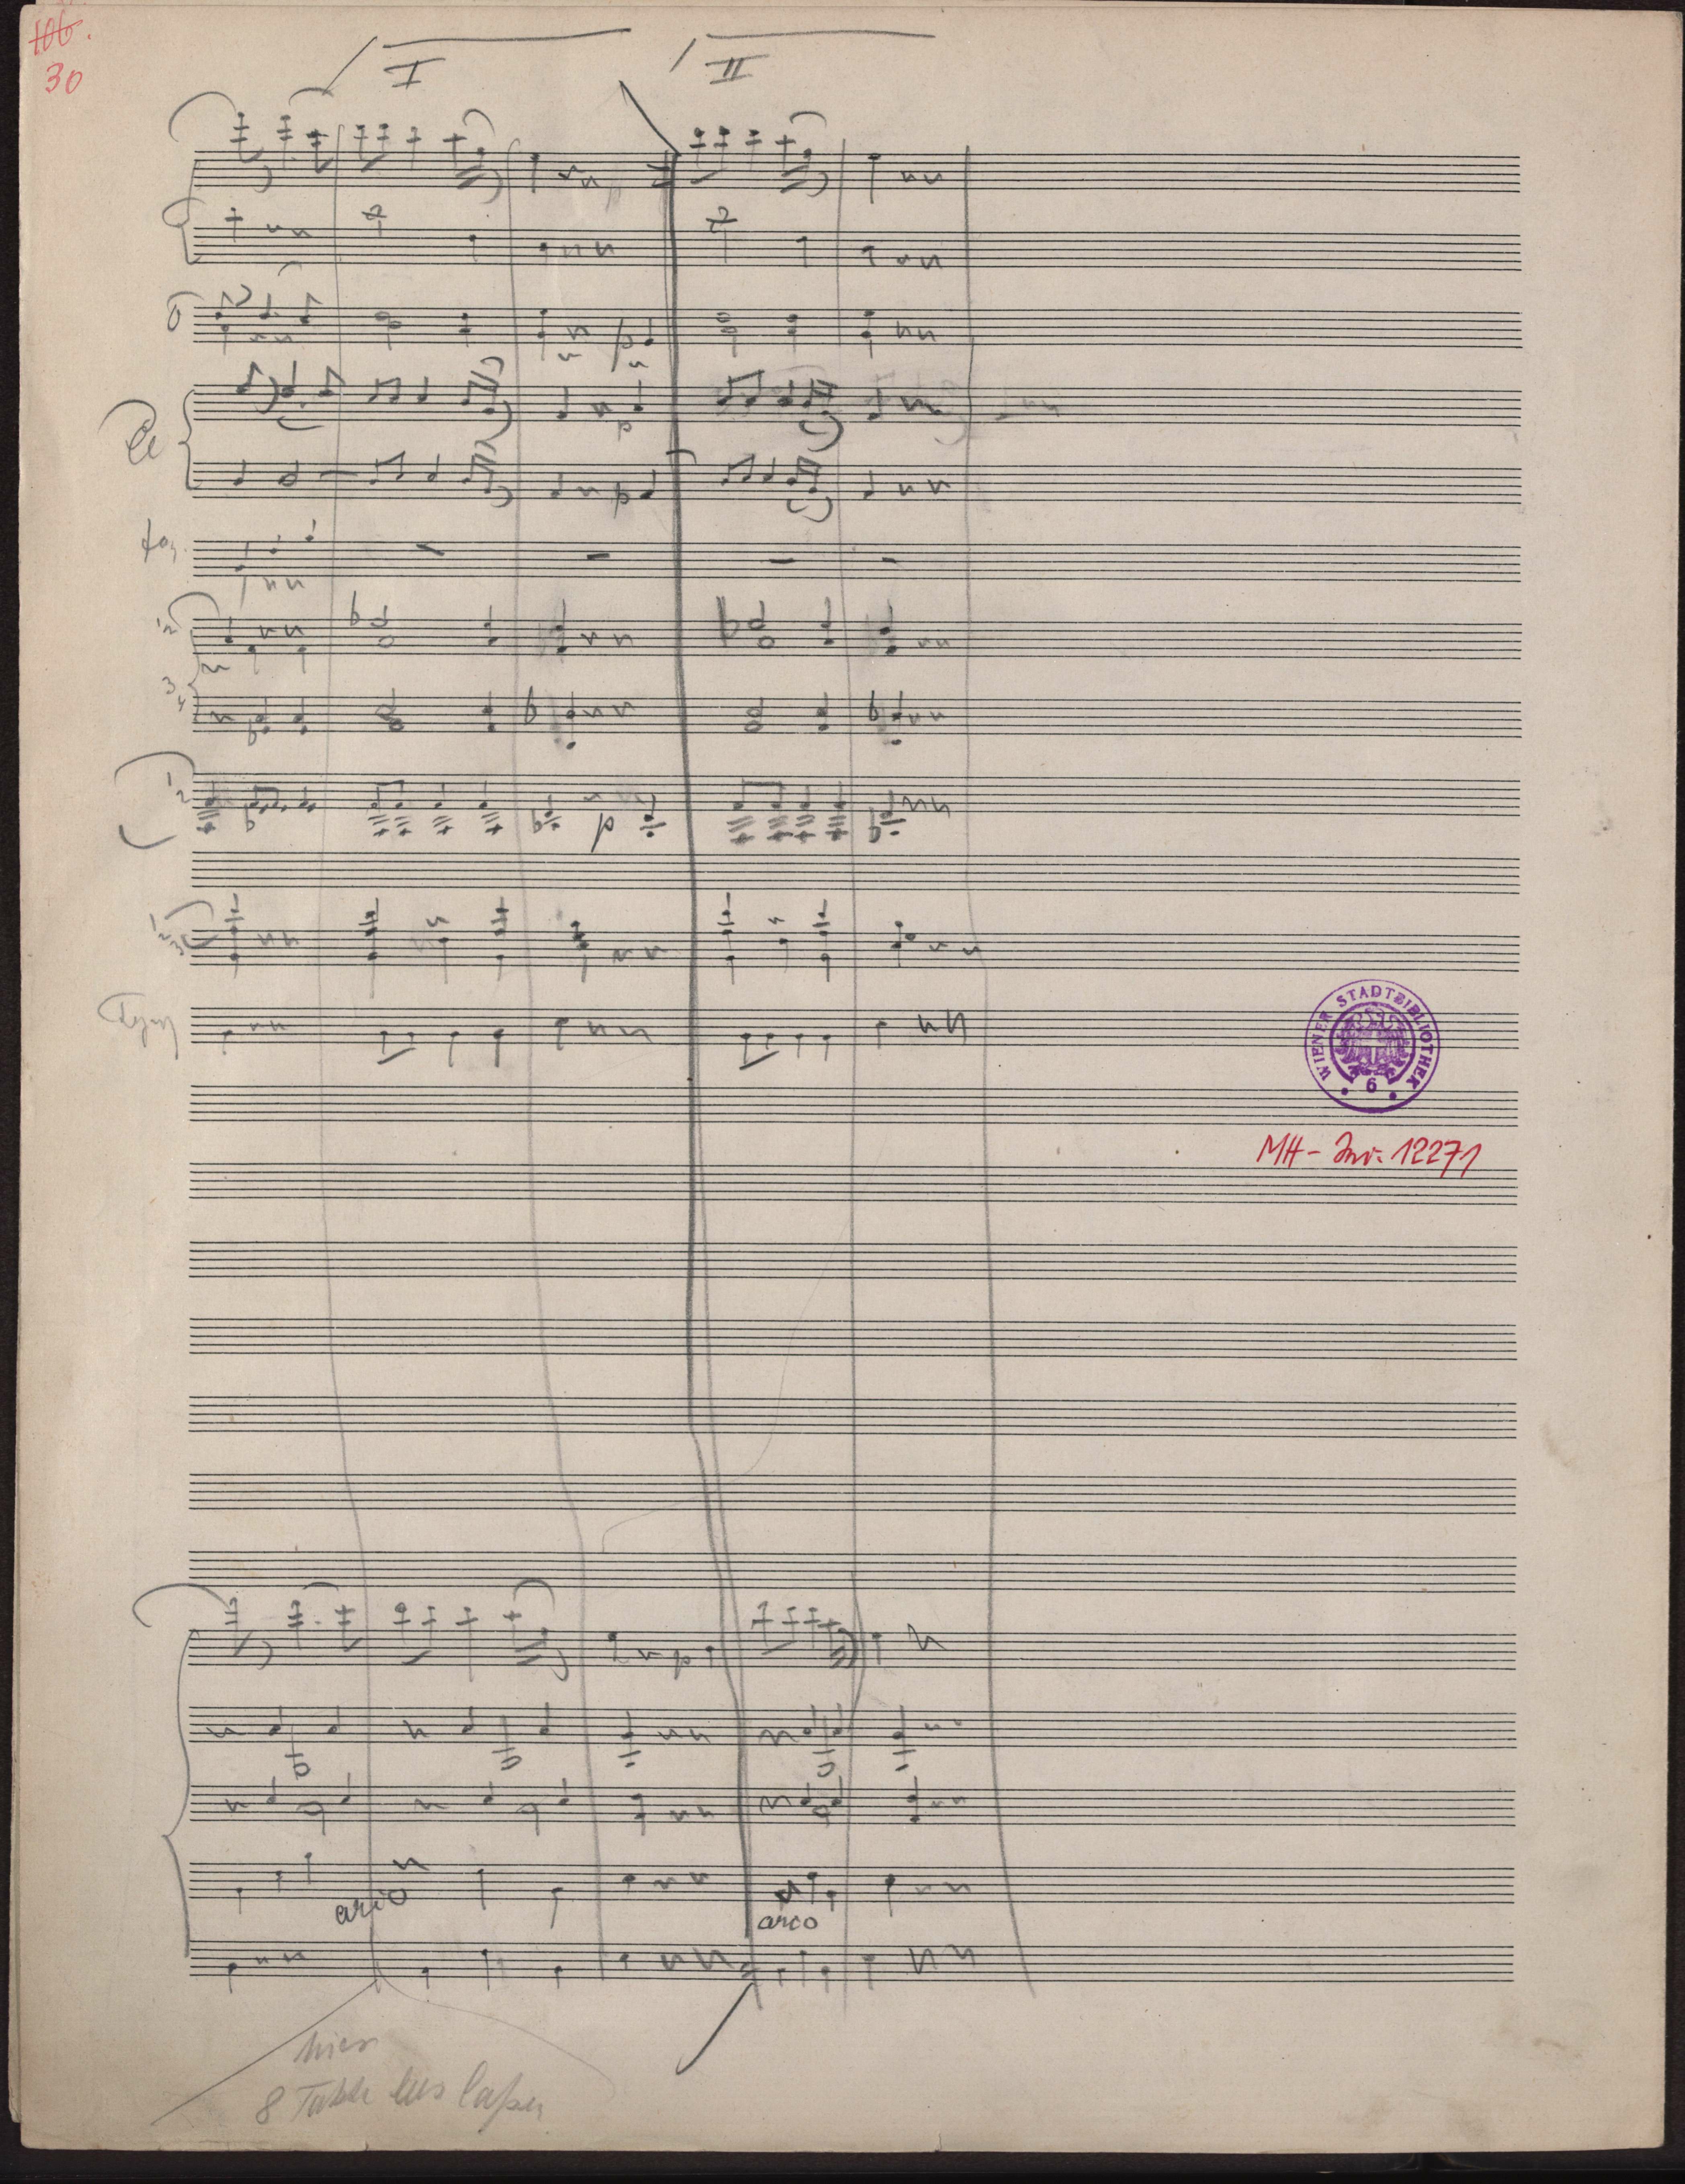 106.
30
I II
p
p
1 2
3 4
1 2
p
1 2 3
WIENER STADTBIBLIOTHEK
6
MH - Inv. 12271
p
arco
arco
hier
8 Takte aus laßen